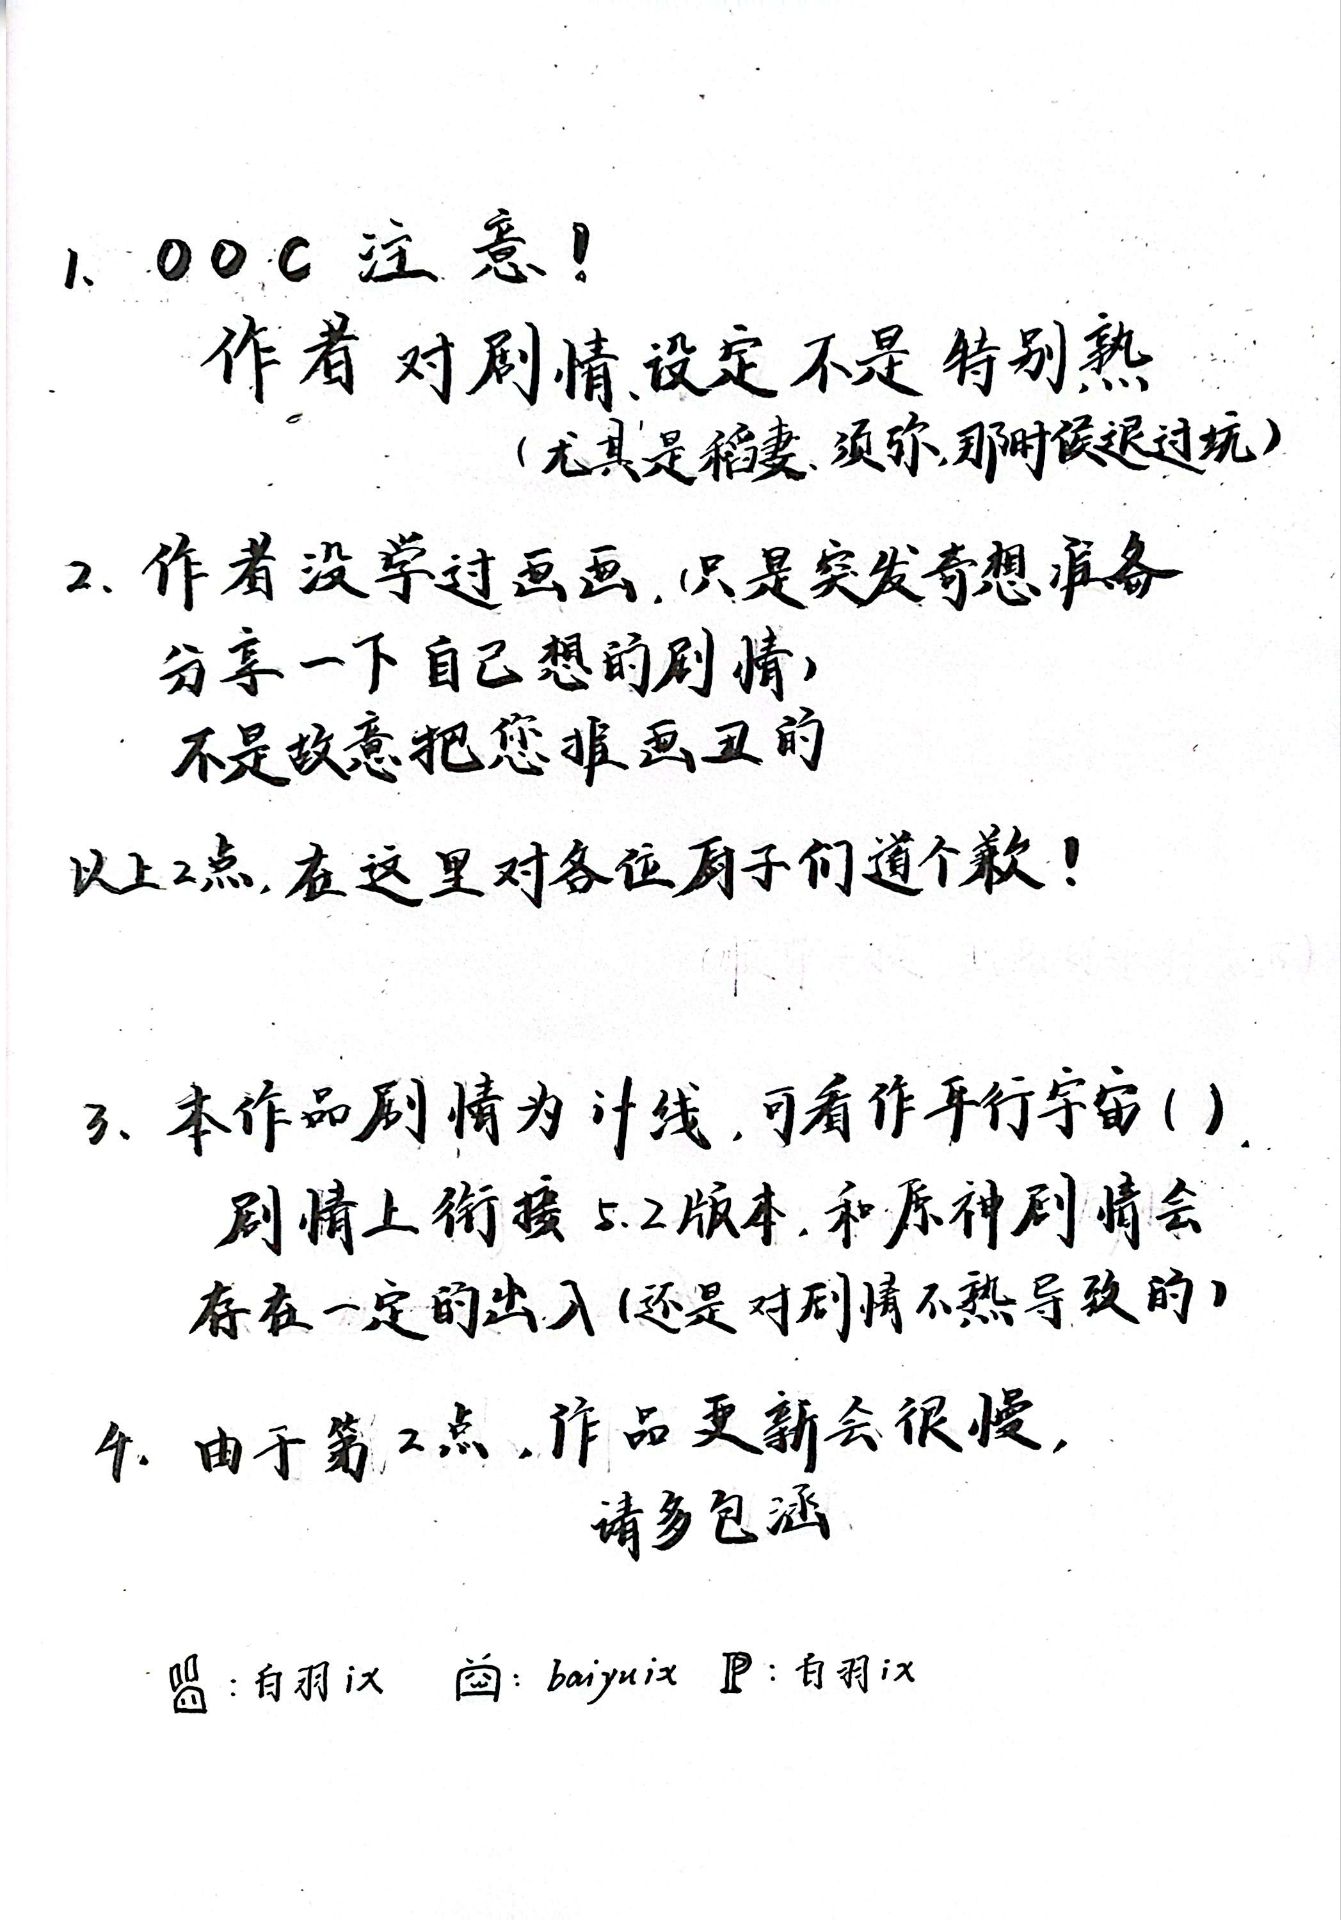 1、OOC 注意！
作者对剧情、设定不是特别熟
（尤其是稻妻、须弥，那时候退过坑）
2、作者没学过画画，只是突发奇想准备
分享一下自己想的剧情，
不是故意把您推画丑的
以上2点，在这里对各位厨子们道个歉！
3、本作品剧情为if线，可看作平行宇宙（），
剧情上衔接5.2版本，和原神剧情会
存在一定的出入（还是对剧情不熟导致的）
4、由于第2点，作品更新会很慢，
请多包涵
：白羽ix ：baiyuix P：白羽ix